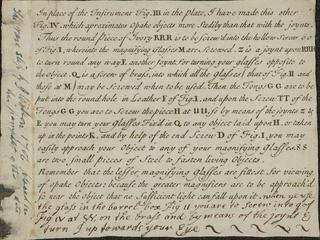 In place of the Instrument Fig. III in the plate, I have made this other
Fig. IV, which aproximates Opake objects more Steddily than that with the joynts.
Thus the round Piece of Ivory RRR is to be screw'd into the hollow Screw
of Fig. I, whereinto the magnifying Glasses M are Screwed. Z is a joynt upon RRR
to turn round any way E another joynt for turning your glasses opposite to the
object. Q, is a screw of brass, into which all the glasses, that of Fig. II and
those at M may be Screwed when to be used. Then the Tongs GG are to be
put into the round hole in Leather F of Fig. I, and upon the Screw TT of the
Tongs GG you are to Screw the piece H at UU, & by means of the joynts Z &
E you may turn your Glasses Fix'd in Q to any Object laid upon H, or taken
up in the points K, and by help of the end Screw D of Fig. I, you may
easily approach your Object to any of your magnifying Glasses. SS
are two small Pieces of Steel to fasten living Objects.
Remember that the lesser magnifying Glasses are fittest for viewing
of opake Objects because the greater magnifiers are to be approach'd
so near the object that no Sufficient light can fall upon it. when you use
the glass in the barrel box Fig II you are to Screw into Q of
Fig IV at VV, on the brass and by means of the joynts E
turn it up towards your Eye